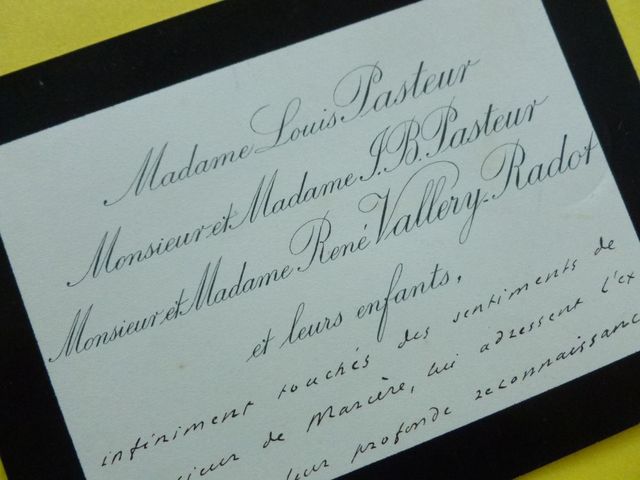 Madame Louis Pasteur
Monsieur et Madame J.B. Pasteur
Monsieur et Madame René Vallery-Radot
et leurs enfants,
infiniment touchés des sentiments de
de Marcère, lui adressent l'ex
leur profonde reconnaissance